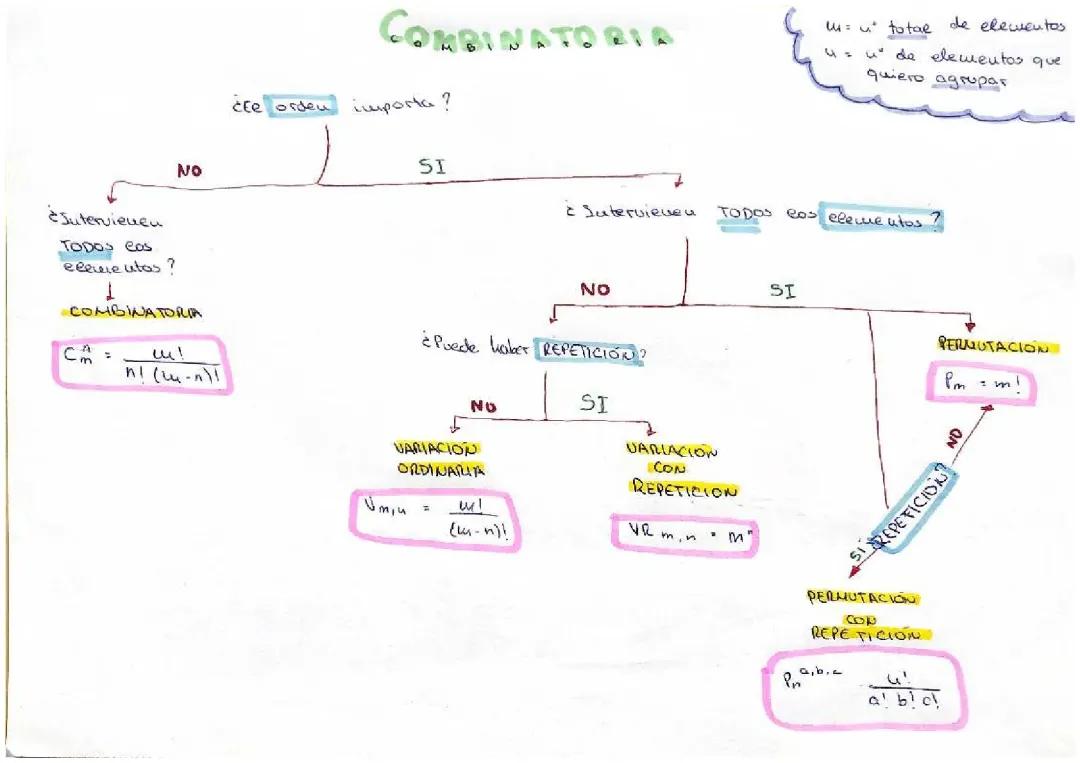 COMBINATORIA
COMBINATORIA
m = nº total de elementos
n = nº de elementos que
quiero agrupar
¿El orden importa?
NO
SI
¿Intervienen
TODOS los
elementos?
COMBINATORIA
C_m^n = m! / n! (m-n)!
¿Intervienen TODOS los elementos?
NO
SI
¿Puede haber REPETICIÓN?
NO
SI
VARIACIÓN
ORDINARIA
V m,n = m! / (m-n)!
VARIACIÓN
CON
REPETICION
VR m,n = m^n
PERMUTACIÓN
P_m = m!
¿REPETICIÓN?
NO
SI
PERMUTACIÓN
CON
REPETICIÓN
P_n^a,b,c n! / a! b! c!